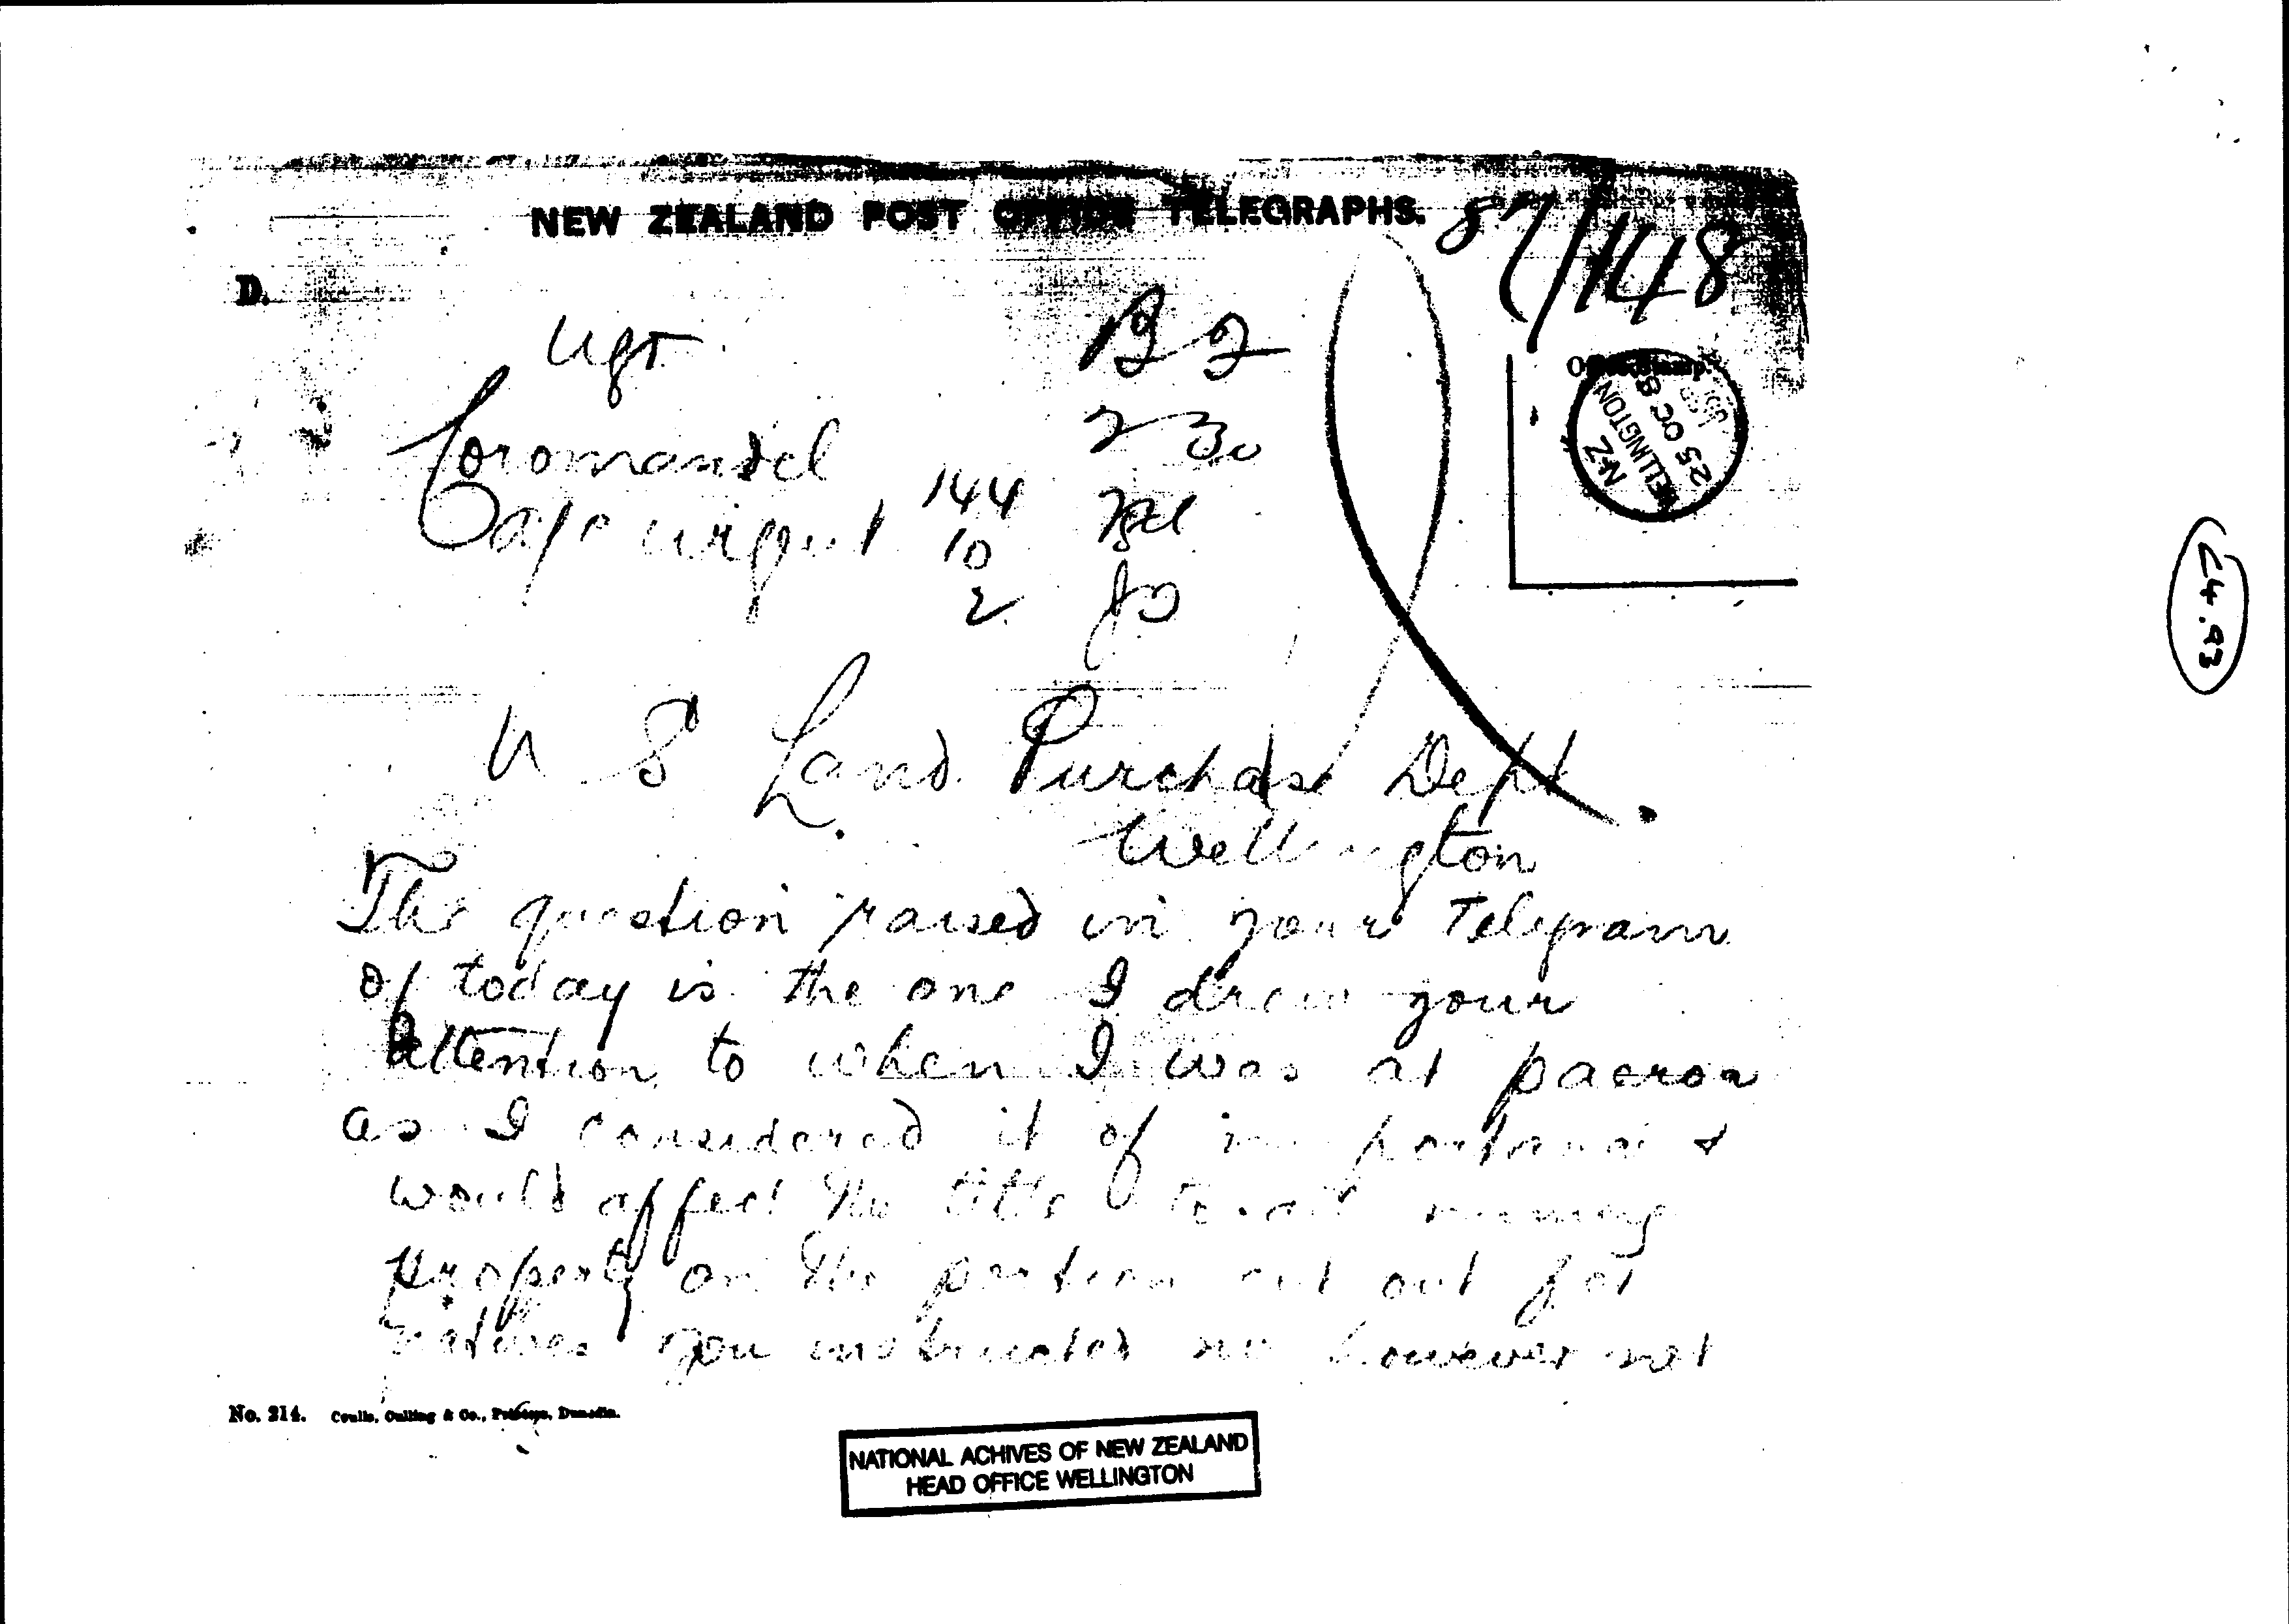 NEW ZEALAND POST OFFICE TELEGRAPHS.
87/148
D.
Ugt
B 2
Office Stamp.
N.Z
WELLINGTON
25 OC 8
Coromandel
2 30
O a/c urgent 144
10
2
24.93
U S Land Purchase Dept
Wellington
The question raised in your Telegram
of today is the one I drew your
attention to when I was at paeroa
as I considered it of importance &
would affect the title to all mining
property on the portion cut out for
natives you instructed me however not
No. 214. Coulls, Culling & Co., Printers, Dunedin.
NATIONAL ACHIVES OF NEW ZEALAND
HEAD OFFICE WELLINGTON